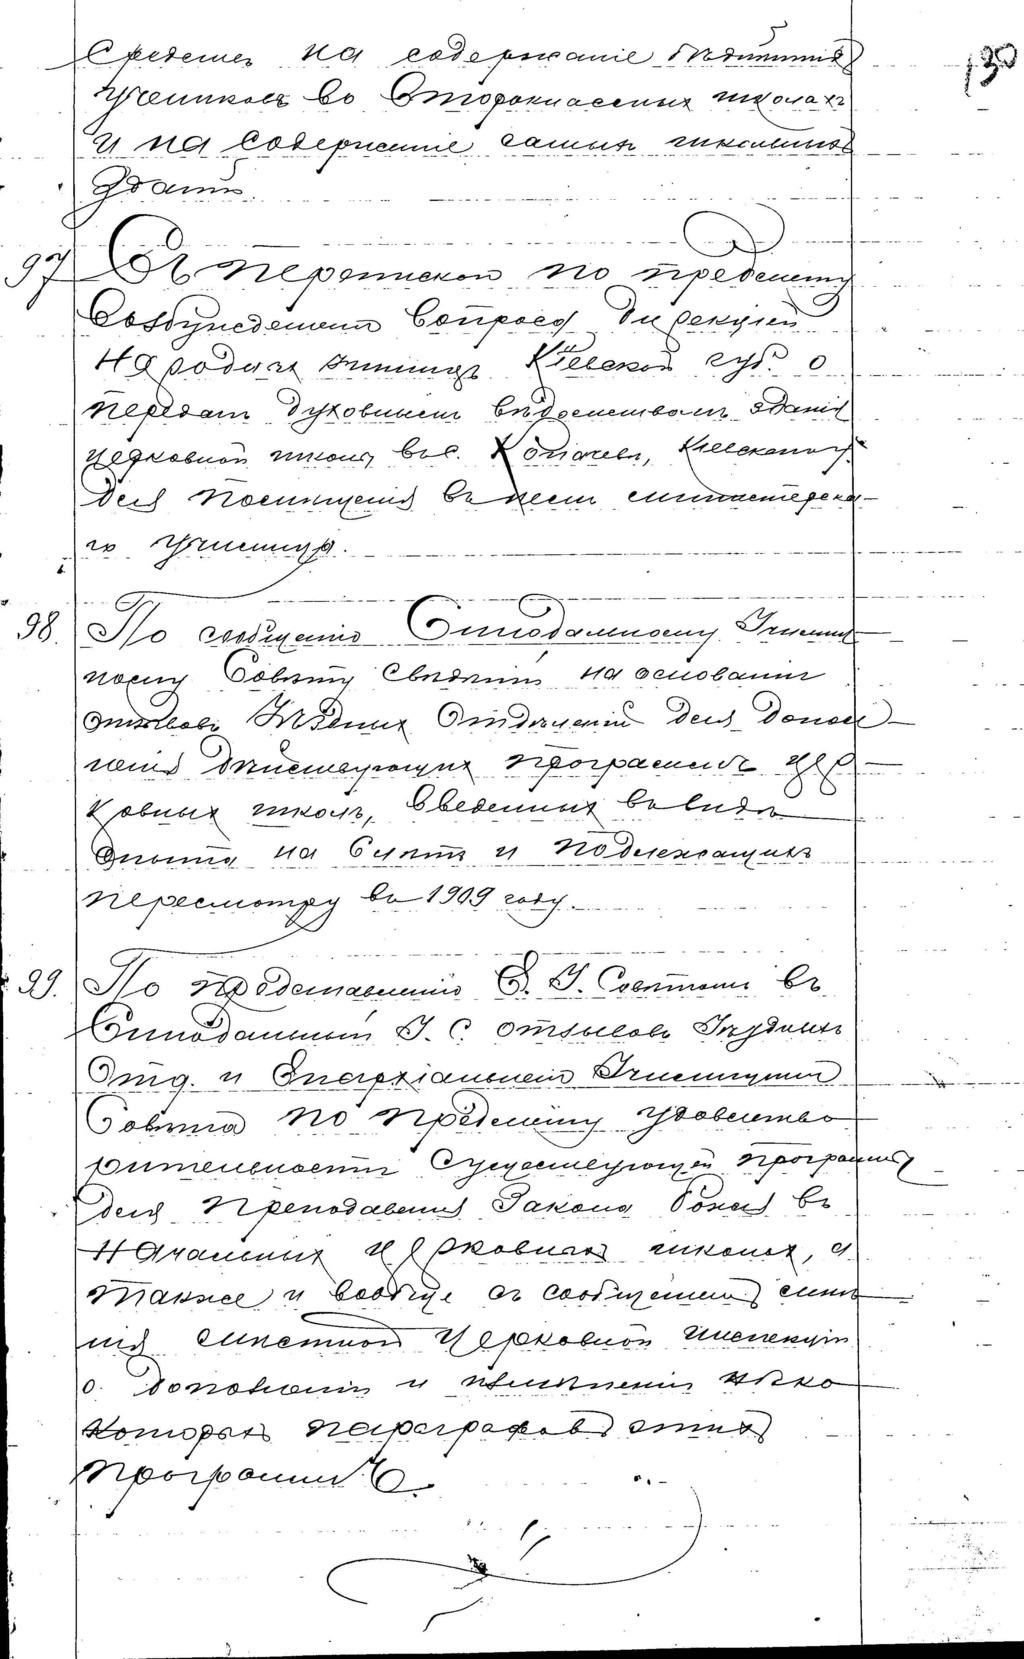 130
средствъ на содержаніе бѣднѣйшихъ
учениковъ во второклассныхъ школахъ
и на содержаніе самихъ школьныхъ
зданій.
97 Съ перепиской по предмету
возбужденнаго вопроса Дирекціей
Народныхъ Училищъ Кіевской губ. о
передачѣ духовнымъ вѣдомствомъ зданія
церковной школы въ с. Копачевѣ, Кіевскаго у.
для помѣщенія въ немъ министерска-
го училища.
98. По сообщенію Синодальному Училищ
ному Совѣту свѣдѣній на основаніи
отзывовъ Уѣздныхъ Отдѣленій для допол
ненія дѣйствующихъ программъ цер
ковныхъ школъ, введенныхъ въ видѣ
опыта на 6 лѣтъ и подлежащихъ
пересмотру въ 1909 году.
99. По представленію Е. У. Совѣтомъ въ
Синодальный У. С. отзывовъ Уѣздныхъ
Отд. и Епархіальнаго Училищнаго
Совѣта по предмету удовлетво
рительности существующей программы
для преподаванія Закона Божія въ
Начальныхъ церковныхъ школахъ, а
также и вообще съ сообщеніемъ мнѣ
нія мѣстной церковной инспекціи
о дополненіи и измѣненіи нѣко
которыхъ параграфовъ этихъ
программъ.